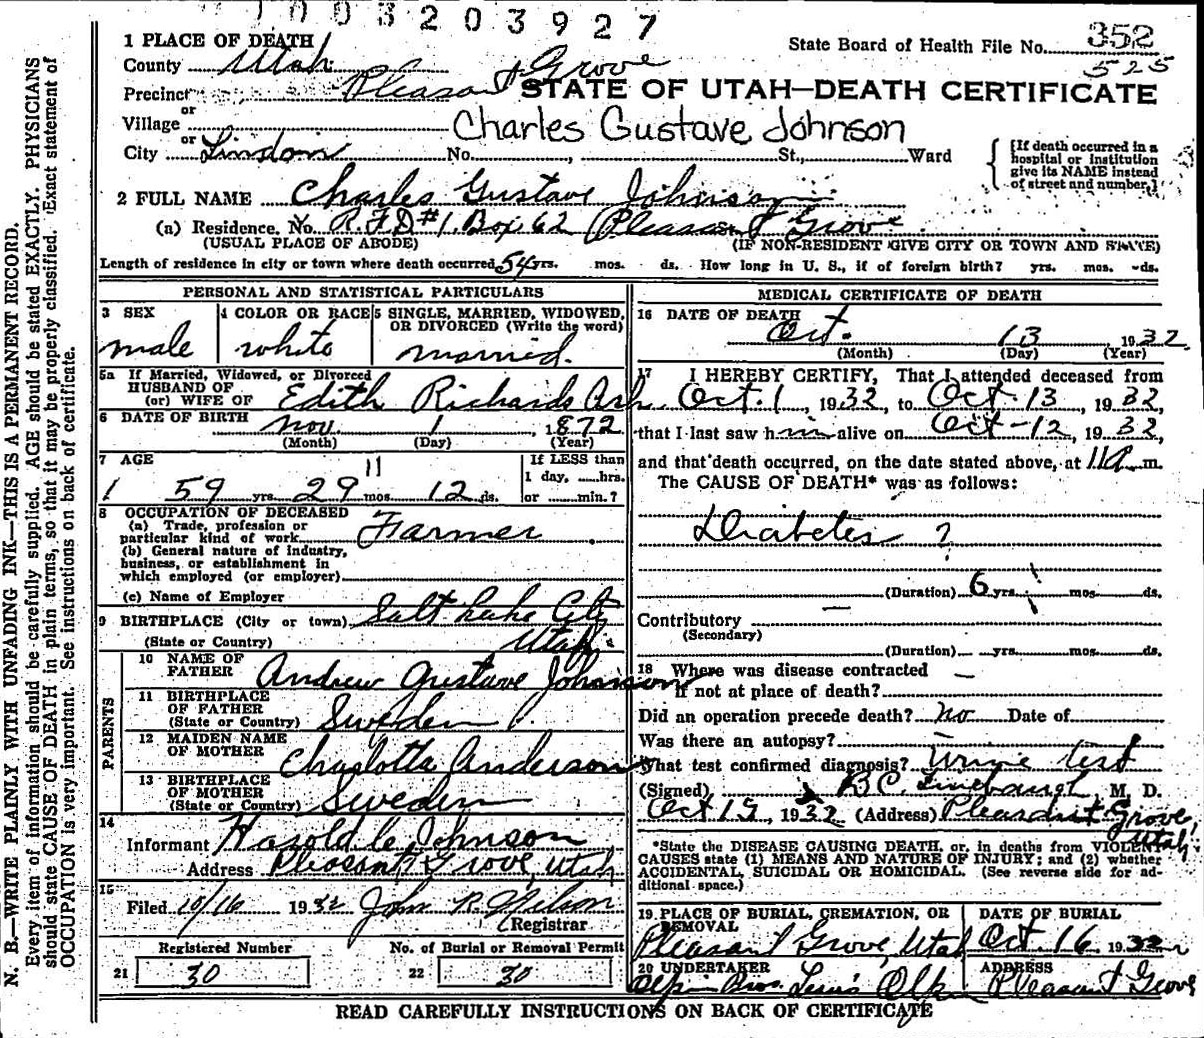 1003203927
1 PLACE OF DEATH
State Board of Health File No. 352
525
County Utah
Precinct Pleasant Grove
STATE OF UTAH—DEATH CERTIFICATE
or
Village
Charles Gustave Johnson
or
City Lindon No. , St., Ward
{ [If death occurred in a hospital or institution give its NAME instead of street and number.]
2 FULL NAME Charles Gustave Johnson
(a) Residence. No. R.F.D #1. Box 62 Pleasant Grove
(USUAL PLACE OF ABODE) (IF NON-RESIDENT GIVE CITY OR TOWN AND STATE)
Length of residence in city or town where death occurred 54 yrs. mos. ds. How long in U. S., if of foreign birth? yrs. mos. ds.
PERSONAL AND STATISTICAL PARTICULARS
3 SEX
male
4 COLOR OR RACE
white
5 SINGLE, MARRIED, WIDOWED, OR DIVORCED (Write the word)
married.
5a If Married, Widowed, or Divorced
HUSBAND OF
(or) WIFE OF Edith Richards Ash
6 DATE OF BIRTH
Nov 1, 1872
(Month) (Day) (Year)
7 AGE
11
1 59 yrs. 29 mos. 12 ds.
If LESS than
1 day, hrs.
or min.?
8 OCCUPATION OF DECEASED
(a) Trade, profession or
particular kind of work Farmer
(b) General nature of industry,
business, or establishment in
which employed (or employer)
(c) Name of Employer
9 BIRTHPLACE (City or town) Salt Lake City
(State or Country) Utah
PARENTS
10 NAME OF
FATHER Andrew Gustave Johnson
11 BIRTHPLACE
OF FATHER
(State or Country) Sweden
12 MAIDEN NAME
OF MOTHER Charlotta Anderson
13 BIRTHPLACE
OF MOTHER
(State or Country) Sweden
14
Informant Harold C Johnson
Address Pleasant Grove, Utah
15
Filed 10/16 1932 John R. Wilson
Registrar
Registered Number
21 30
No. of Burial or Removal Permit
22 30
MEDICAL CERTIFICATE OF DEATH
16 DATE OF DEATH
Oct. 13 1932
(Month) (Day) (Year)
17 I HEREBY CERTIFY, That I attended deceased from
Oct. 1, 1932, to Oct. 13, 1932,
that I last saw him alive on Oct-12, 1932,
and that death occurred, on the date stated above, at 11 a m.
The CAUSE OF DEATH* was as follows:
Diabetes ?
(Duration) 6 yrs. mos. ds.
Contributory —
(Secondary)
(Duration) yrs. mos. ds.
18 Where was disease contracted
if not at place of death? —
Did an operation precede death? no Date of
Was there an autopsy?
What test confirmed diagnosis? Urine test
(Signed) B C Linebaugh, M. D.
Oct 15 1932 (Address) Pleasant Grove,
Utah
*State the DISEASE CAUSING DEATH, or, in deaths from VIOLENT
CAUSES state (1) MEANS AND NATURE OF INJURY; and (2) whether
ACCIDENTAL, SUICIDAL OR HOMICIDAL. (See reverse side for ad-
ditional space.)
19 PLACE OF BURIAL, CREMATION, OR
REMOVAL
Pleasant Grove, Utah
DATE OF BURIAL
Oct. 16 1932
20 UNDERTAKER
Olpin Bros. Lewis Olpin
ADDRESS
Pleasant Grove
READ CAREFULLY INSTRUCTIONS ON BACK OF CERTIFICATE
N. B.—WRITE PLAINLY WITH UNFADING INK—THIS IS A PERMANENT RECORD.
Every item of information should be carefully supplied. AGE should be stated EXACTLY. PHYSICIANS
should state CAUSE OF DEATH in plain terms, so that it may be properly classified. Exact statement of
OCCUPATION is very important. See instructions on back of certificate.